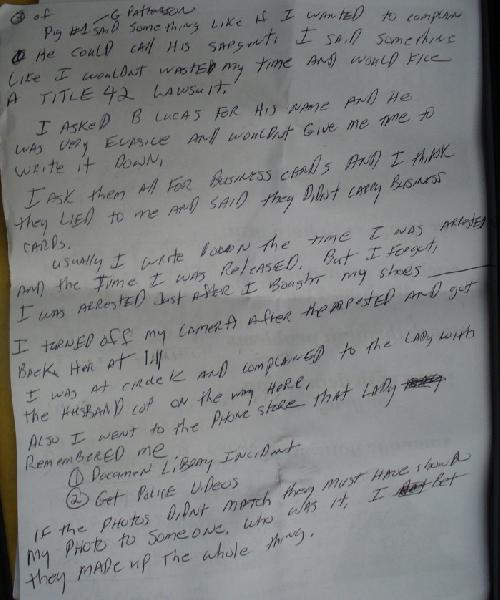 ③ of G Patterson
Pig #1 said something like if I wanted to complain
he could call his sargent. I said something
like I wouldnt wasted my time and would file
a Title 42 lawsuit.
I asked B Lucas for his name and he
was very evasive and wouldnt give me time to
write it down.
I ask them all for business cards and I think
they lied to me and said they didnt carry business
cards.
usually I write down the time I was arrested
and the time I was released. But I forgot.
I was arrested just after I bought my shoes
I turned off my camera after the arrested and got
back har at 1
I was at circle K and complained to the lady with
the husband cop on the way here.
Also I went to the phone store that lady
remembered me.
① Documen Library Incident
② Get Police Videos
If the photos didnt match they must have shown
my photo to someone. who was it. I bet
they made up the whole thing.